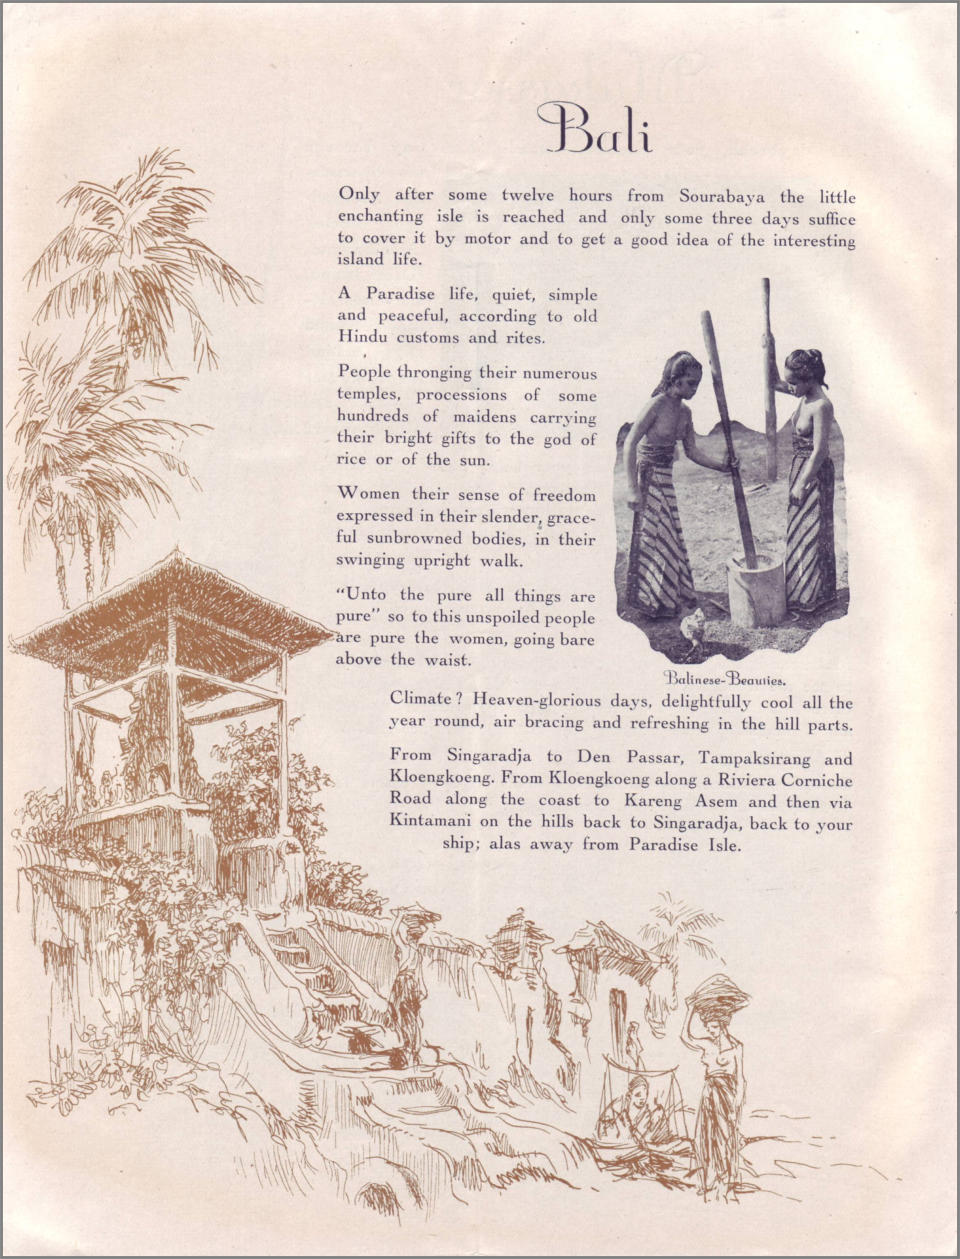 Bali
Only after some twelve hours from Sourabaya the little
enchanting isle is reached and only some three days suffice
to cover it by motor and to get a good idea of the interesting
island life.
A Paradise life, quiet, simple
and peaceful, according to old
Hindu customs and rites.
People thronging their numerous
temples, processions of some
hundreds of maidens carrying
their bright gifts to the god of
rice or of the sun.
Women their sense of freedom
expressed in their slender, grace-
ful sunbrowned bodies, in their
swinging upright walk.
“Unto the pure all things are
pure” so to this unspoiled people
are pure the women, going bare
above the waist.
Balinese-Beauties.
Climate? Heaven-glorious days, delightfully cool all the
year round, air bracing and refreshing in the hill parts.
From Singaradja to Den Passar, Tampaksirang and
Kloengkoeng. From Kloengkoeng along a Riviera Corniche
Road along the coast to Kareng Asem and then via
Kintamani on the hills back to Singaradja, back to your
ship; alas away from Paradise Isle.